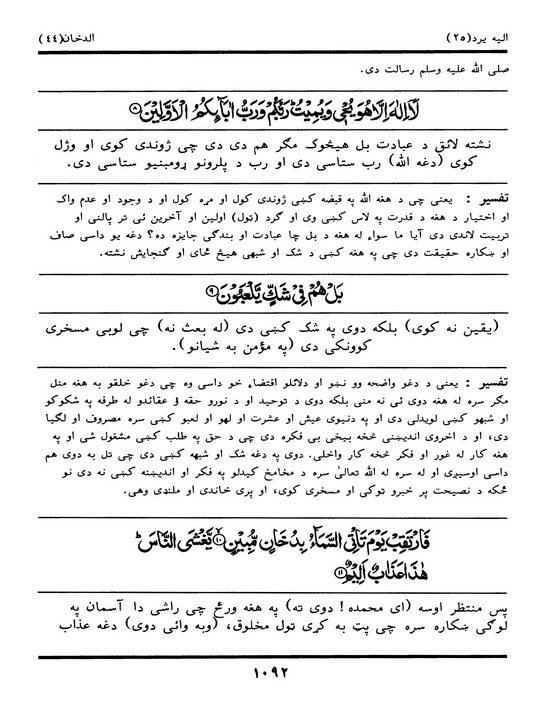 الیه یرد(۲۵) الدخان(٤٤)
صلی الله علیه وسلم رسالت دی.
لَآ اِلٰهَ اِلَّا هُوَ یُحْیٖ وَیُمِیْتُ ؕ رَبُّكُمْ وَرَبُّ اٰبَآىِٕكُمُ الْاَوَّلِیْنَ۝۸
نشته لائق د عبادت بل هیڅوک مگر هم دی دی چی ژوندی کوی او وژل
کوی (دغه الله) رب ستاسی دی او رب د پلرونو ړومبنیو ستاسی دی.
تفسیر : یعنی چی د هغه الله په قبضه کښی ژوندی کول او مړه کول او د وجود او عدم واک
او اختیار د هغه د قدرت په لاس کښی وی او گرد (ټول) اولین او آخرین ئی تر پالنی او
تربیت لاندی دی آیا ما سواء له هغه د بل چا عبادت او بندگی جایزه ده؟ دغه یو داسی صاف
او ښکاره حقیقت دی چی په هغه کښی د شک او شبهی هیڅ ځای او گنجایش نشته.
بَلْ هُمْ فِیْ شَكٍّ یَّلْعَبُوْنَ۝۹
(یقین نه کوی) بلکه دوی په شک کښی دی (له بعث نه) چی لوبی مسخری
کوونکی دی (په مؤمن به شیانو).
تفسیر : یعنی د دغو واضحه وو نښو او دلائلو اقتضاء خو داسی وه چی دغو خلقو به هغه منل
مگر سره له هغه دوی ئی نه منی بلکه دوی د توحید او د نورو حقه ؤ عقائدو له طرفه په شکوکو
او شبهو کښی لویدلی دی او په دنیوی عیش او عشرت او لهو او لعبو کښی سره مصروف او لگیا
دی، او د اخروی اندیښنی څخه بیخی بی فکره دی چی د حق په طلب کښی مشغول شی او په
هغه کار له غور او فکر څخه کار واخلی. دوی په دغه شک او شبهه کښی دی چی تل به دوی هم
داسی اوسیږی او له سره له الله تعالیٰ سره د مخامخ کیدلو په فکر او اندیښنه کښی نه دی نو
ځکه د نصیحت پر خبرو ټوکی او مسخری کوی، او پری خاندی او ملنډی وهی.
فَارْتَقِبْ یَوْمَ تَاْتِی السَّمَآءُ بِدُخَانٍ مُّبِیْنٍ۝۱۰ یَّغْشَی النَّاسَ ؕ
هٰذَا عَذَابٌ اَلِیْمٌ۝۱۱
پس منتظر اوسه (ای محمده! دوی ته) په هغه ورځ چی راشی دا آسمان په
لوگی ښکاره سره چی پټ به کړی ټول مخلوق، (وبه وائی دوی) دغه عذاب
۱۰۹۲